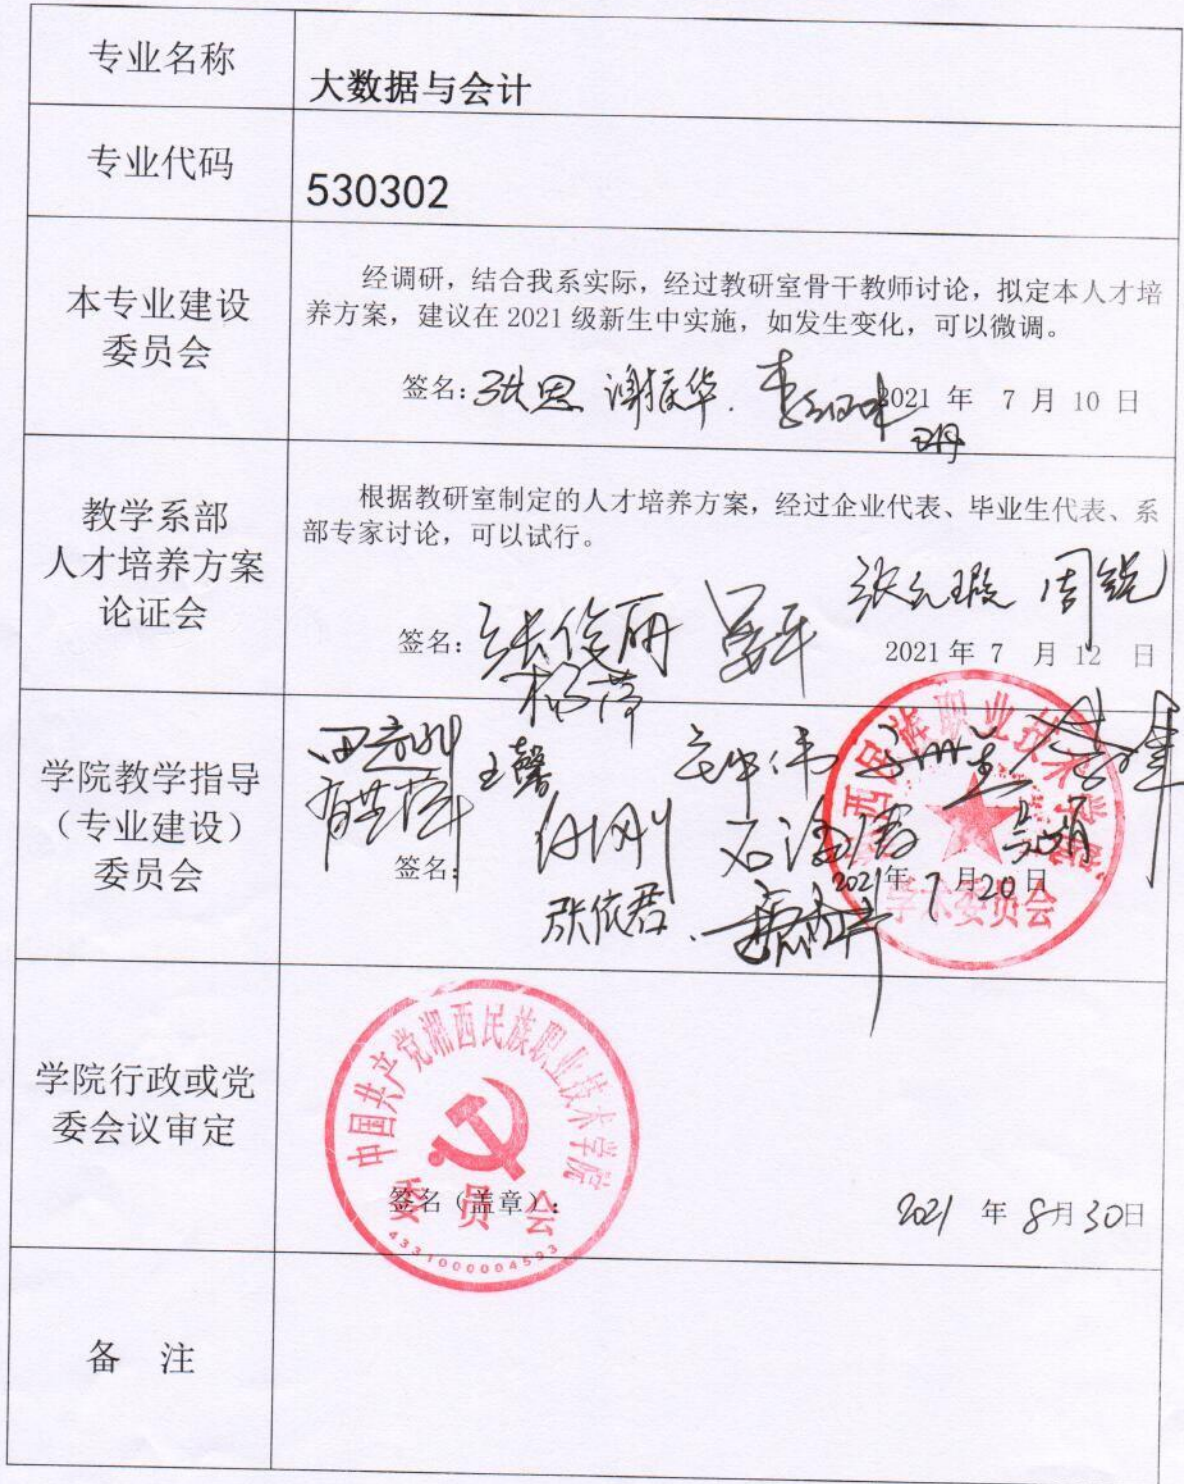 专业名称
大数据与会计
专业代码
530302
本专业建设
委员会
经调研，结合我系实际，经过教研室骨干教师讨论，拟定本人才培
养方案，建议在 2021 级新生中实施，如发生变化，可以微调。
签名：张思 谢振华 2021 年 7 月 10 日
教学系部
人才培养方案
论证会
根据教研室制定的人才培养方案，经过企业代表、毕业生代表、系
部专家讨论，可以试行。
周锐
签名：张俊丽 2021 年 7 月 12 日
杨萍
学院教学指导
（专业建设）
委员会
王馨
付刚
签名： 2021年 7 月20日
张依君
湘西民族职业技术学院
学术委员会
学院行政或党
委会议审定
中国共产党湘西民族职业技术学院
委员会
4331000004593
签名（盖章）： 2021 年 8月30日
备 注